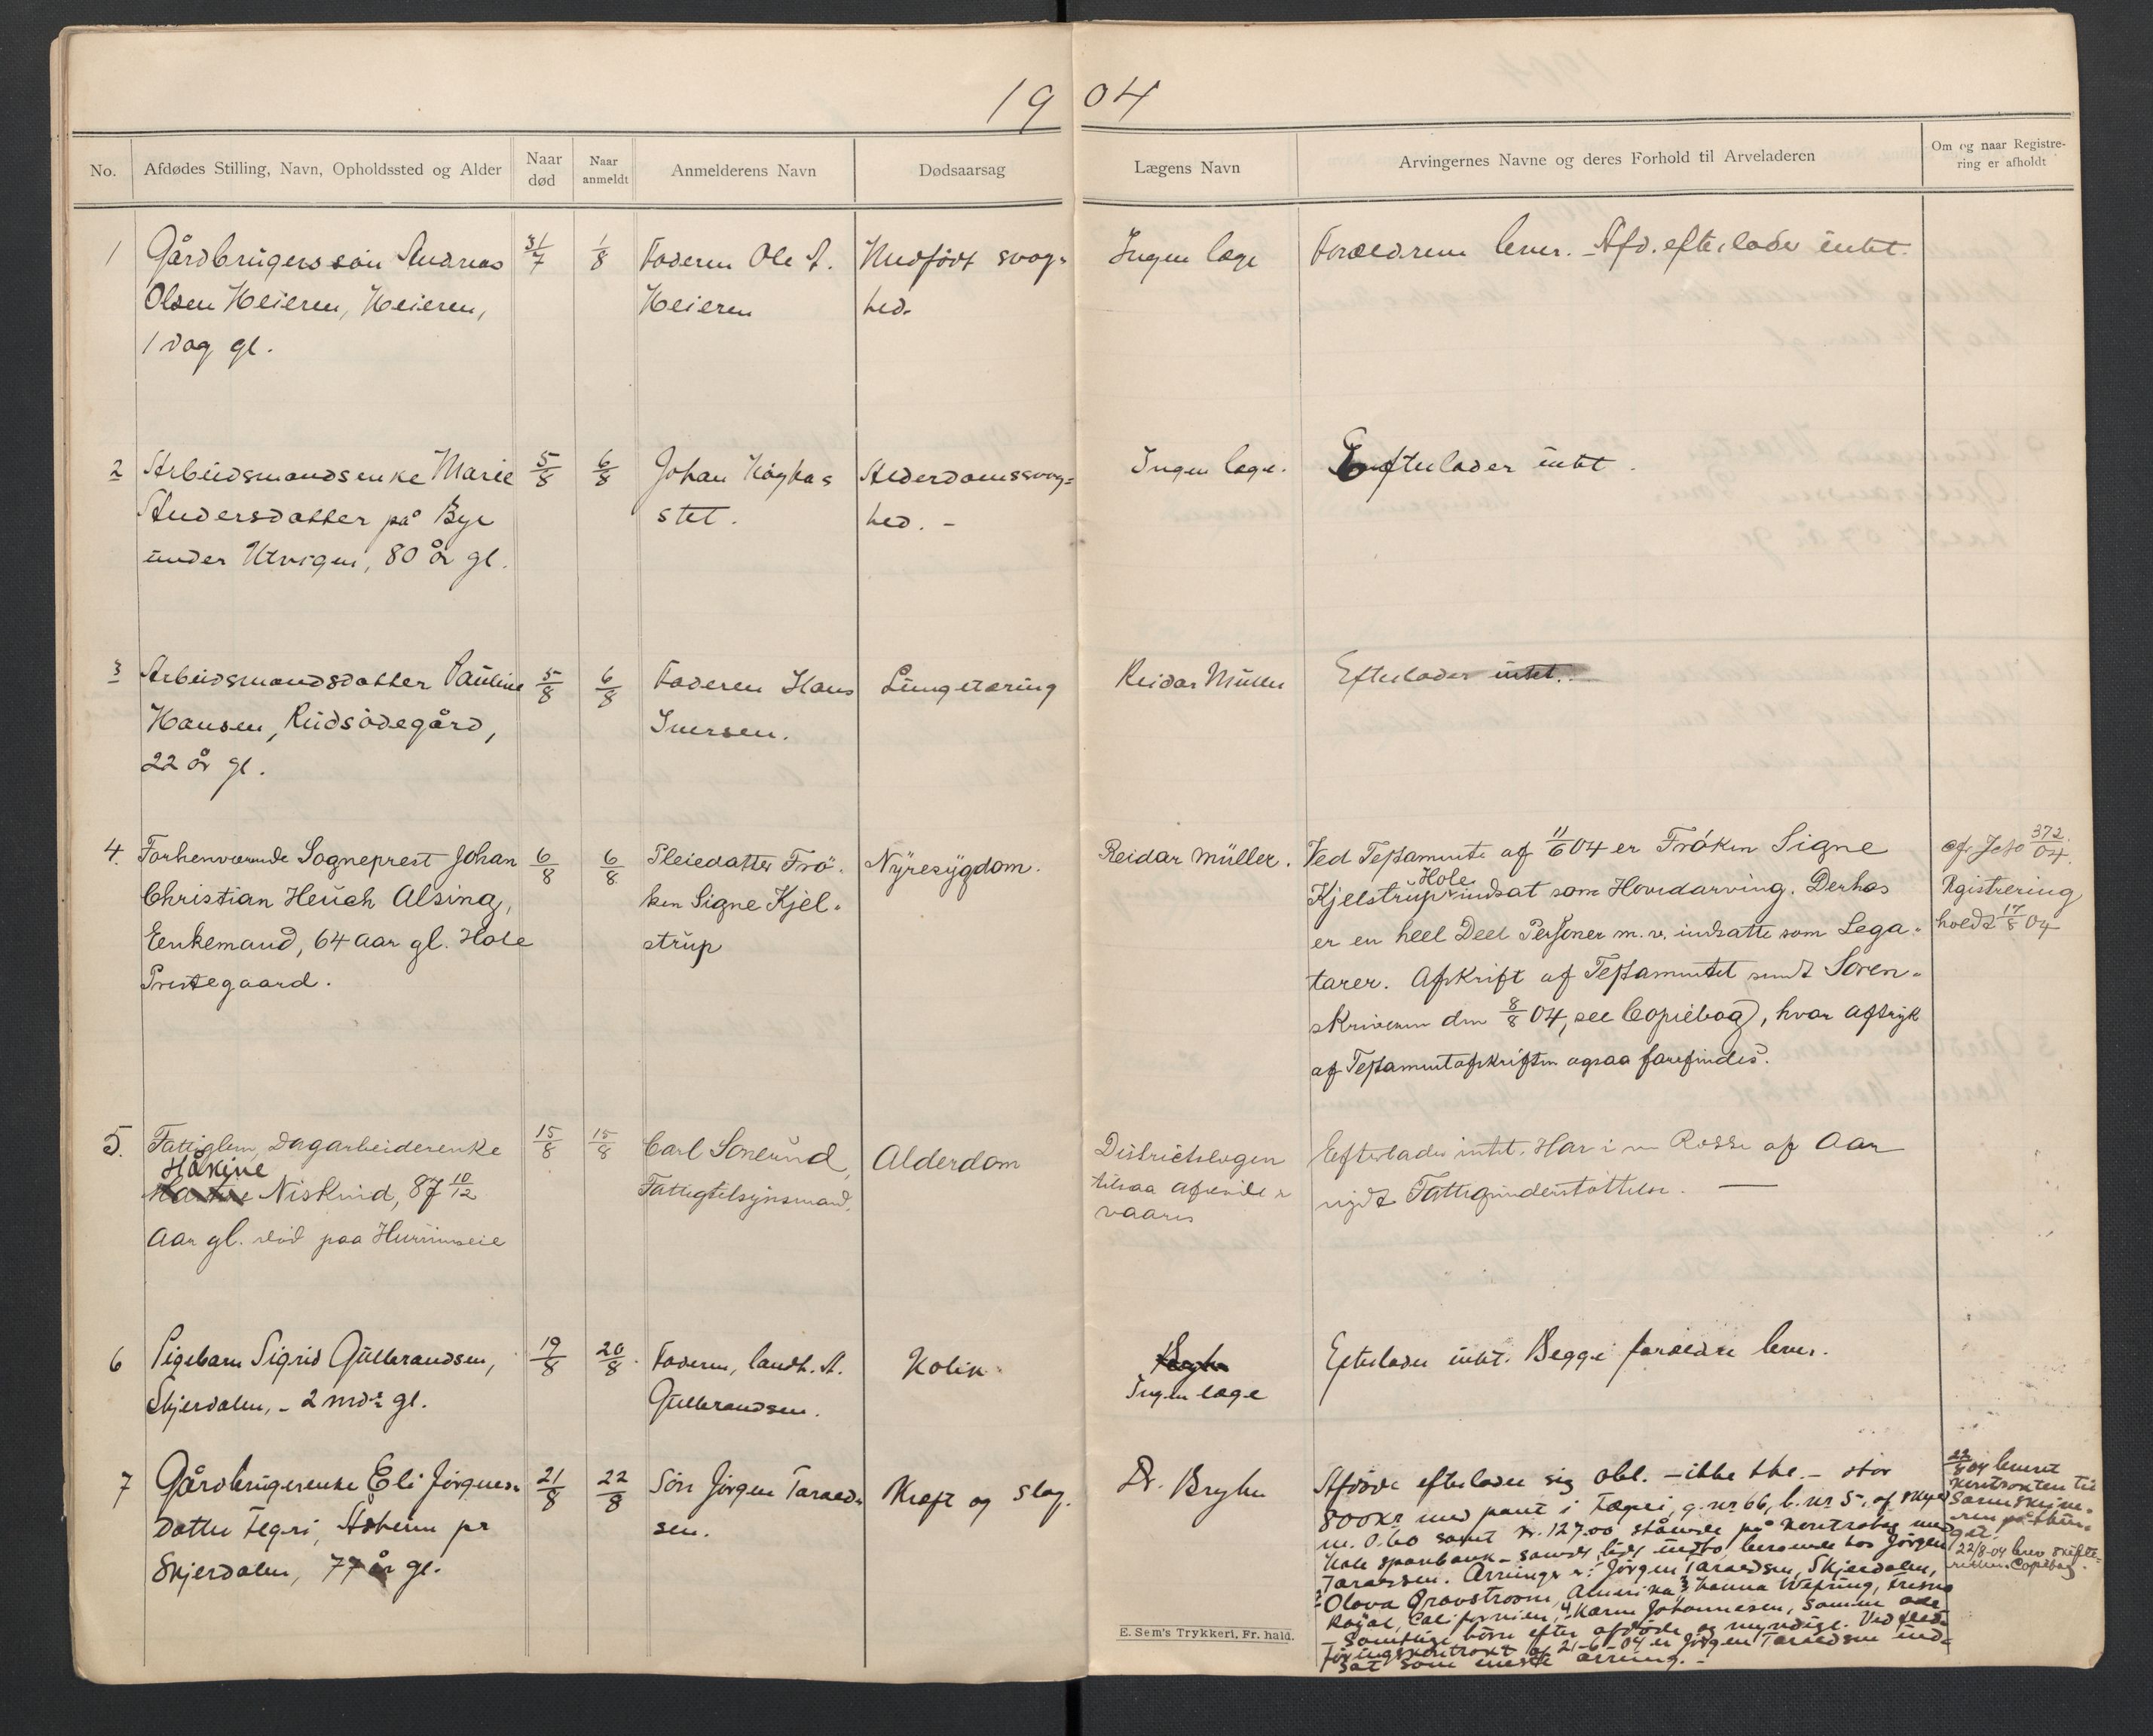 1904
No.
Afdødes Stilling, Navn, Opholdssted og Alder
Naar død
Naar anmeldt
Anmelderens Navn
Dødsaarsag
Lægens Navn
Arvingernes Navne og deres Forhold til Arveladeren
Om og naar Registre-
ring er afholdt
1
Gårdbrugerssøn Andreas
Olsen Heieren, Heieren,
1 dag gl.
31/7
1/8
Faderen Ole A.
Heieren
Medfødt svag-
hed.
Ingen læge
Forældrene lever. - Afd. efterlader intet.
2
Arbeidsmandsenke Marie
Andersdatter på Bye
under Utvigen, 80 år gl.
5/8
6/8
Johan
Alderdomssvag-
hed. -
Ingen læge.
Efterlader intet.
3
Arbeidsmandsdatter Pauline
Hansen, Rudsødegård,
22 år gl.
5/8
6/8
Faderen Hans
Iversen.
Lungetæring
Reidar Müller
Efterlader intet.
4.
Forhenværende Sogneprest Johan
Christian Heuch Alsing,
Enkemand, 64 aar gl. Hole
Prestegaard.
6/8
6/8
Pleiedatter Frø-
ken Signe Kjel-
strup
Nyresygdom.
Reidar Müller.
Ved Testamente af 11/6 04 er Frøken Signe
Kjelstrup Hole indsat som Hovedarving. Derhos
er en heel Deel Personer m.v. indsatte som Lega-
tarer. Afskrift af Testamentet sendt Soren-
skriveren den 8/8 04, see Copiebog, hvor aftryk
af Testamentafskriften ogsaa forefindes.
cfr Jo 372/04.
Registrering
holdt 17/8 04
5.
Fattiglem, Dagarbeiderenke
Håkine
Niskvid, 87 10/12
Aar gl. død paa Hurumseie
15/8
15/8
Carl Sonerud,
Fattigtilsynsmand.
Alderdom
Districtslægen
tilsaa afdøde
Efterlader intet. Har i en Rekke af Aar
nydt Fattigunderstøttelse. —
6
Pigebarn Sigrid Gulbrandsen,
Skjerdalen, - 2 mdr gl.
19/8
20/8
Faderen, landh. A.
Gulbrandsen.
Kolik
Bryhn
Ingen læge
Efterlader intet. Begge forældre lever.
7
Gårdbrugerenke Eli Jørgens-
datter Fegri, Åsheim pr
Skjerdalen, 77 år gl.
21/8
22/8
Søn Jørgen Taralds-
sen.
Kræft og slag.
Dr. Bryhn
Afdøde efterlader sig obl. - ikke tbc. - stor
800 kr med pant i Fægri, g. nr 66, b. nr 5, af skyld
m. 0.60 samt kr. 127.00 stående på kontrabog med
Hole sparebank - samt lidt indbo beroende hos Jørgen
Taraldsen. Arvinger er: Jørgen Taraldsen, Skjerdalen,
2 Olava Amerika, 3 Hanna Fresno
Californien, 4 Karen Johannesen, samme
Samtlige børn efter afdøde og myndige. Ved
føringskontrakt af 21-6-04 er Jørgen Taraldsen ind-
sat som eneste arving. -
22/8 04 leveret
kontrakten til
Sorenskrive-
ren på thin-
get.
22/8-04 brev skifte-
retten. Copibog.
E. Sem's Trykkeri, Fr.hald.